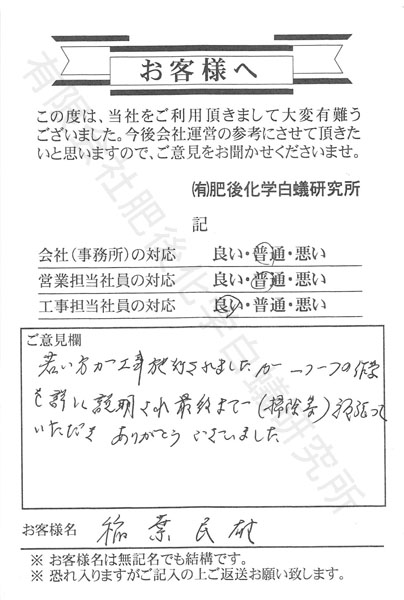 お客様へ
この度は、当社をご利用頂きまして大変有難う
ございました。今後会社運営の参考にさせて頂きた
いと思いますので、ご意見をお聞かせくださいませ。
㈲肥後化学白蟻研究所
記
会社（事務所）の対応 良い・普通・悪い
営業担当社員の対応 良い・普通・悪い
工事担当社員の対応 良い・普通・悪い
ご意見欄
若い方が工事施行されましたが 一つ一つの作業
を詳しく説明され最後まで（掃除等）頑張って
いただき ありがとうございました
お客様名 稲葉民雄
※ お客様名は無記名でも結構です。
※ 恐れ入りますがご記入の上ご返送お願い致します。
有限会社肥後化学白蟻研究所